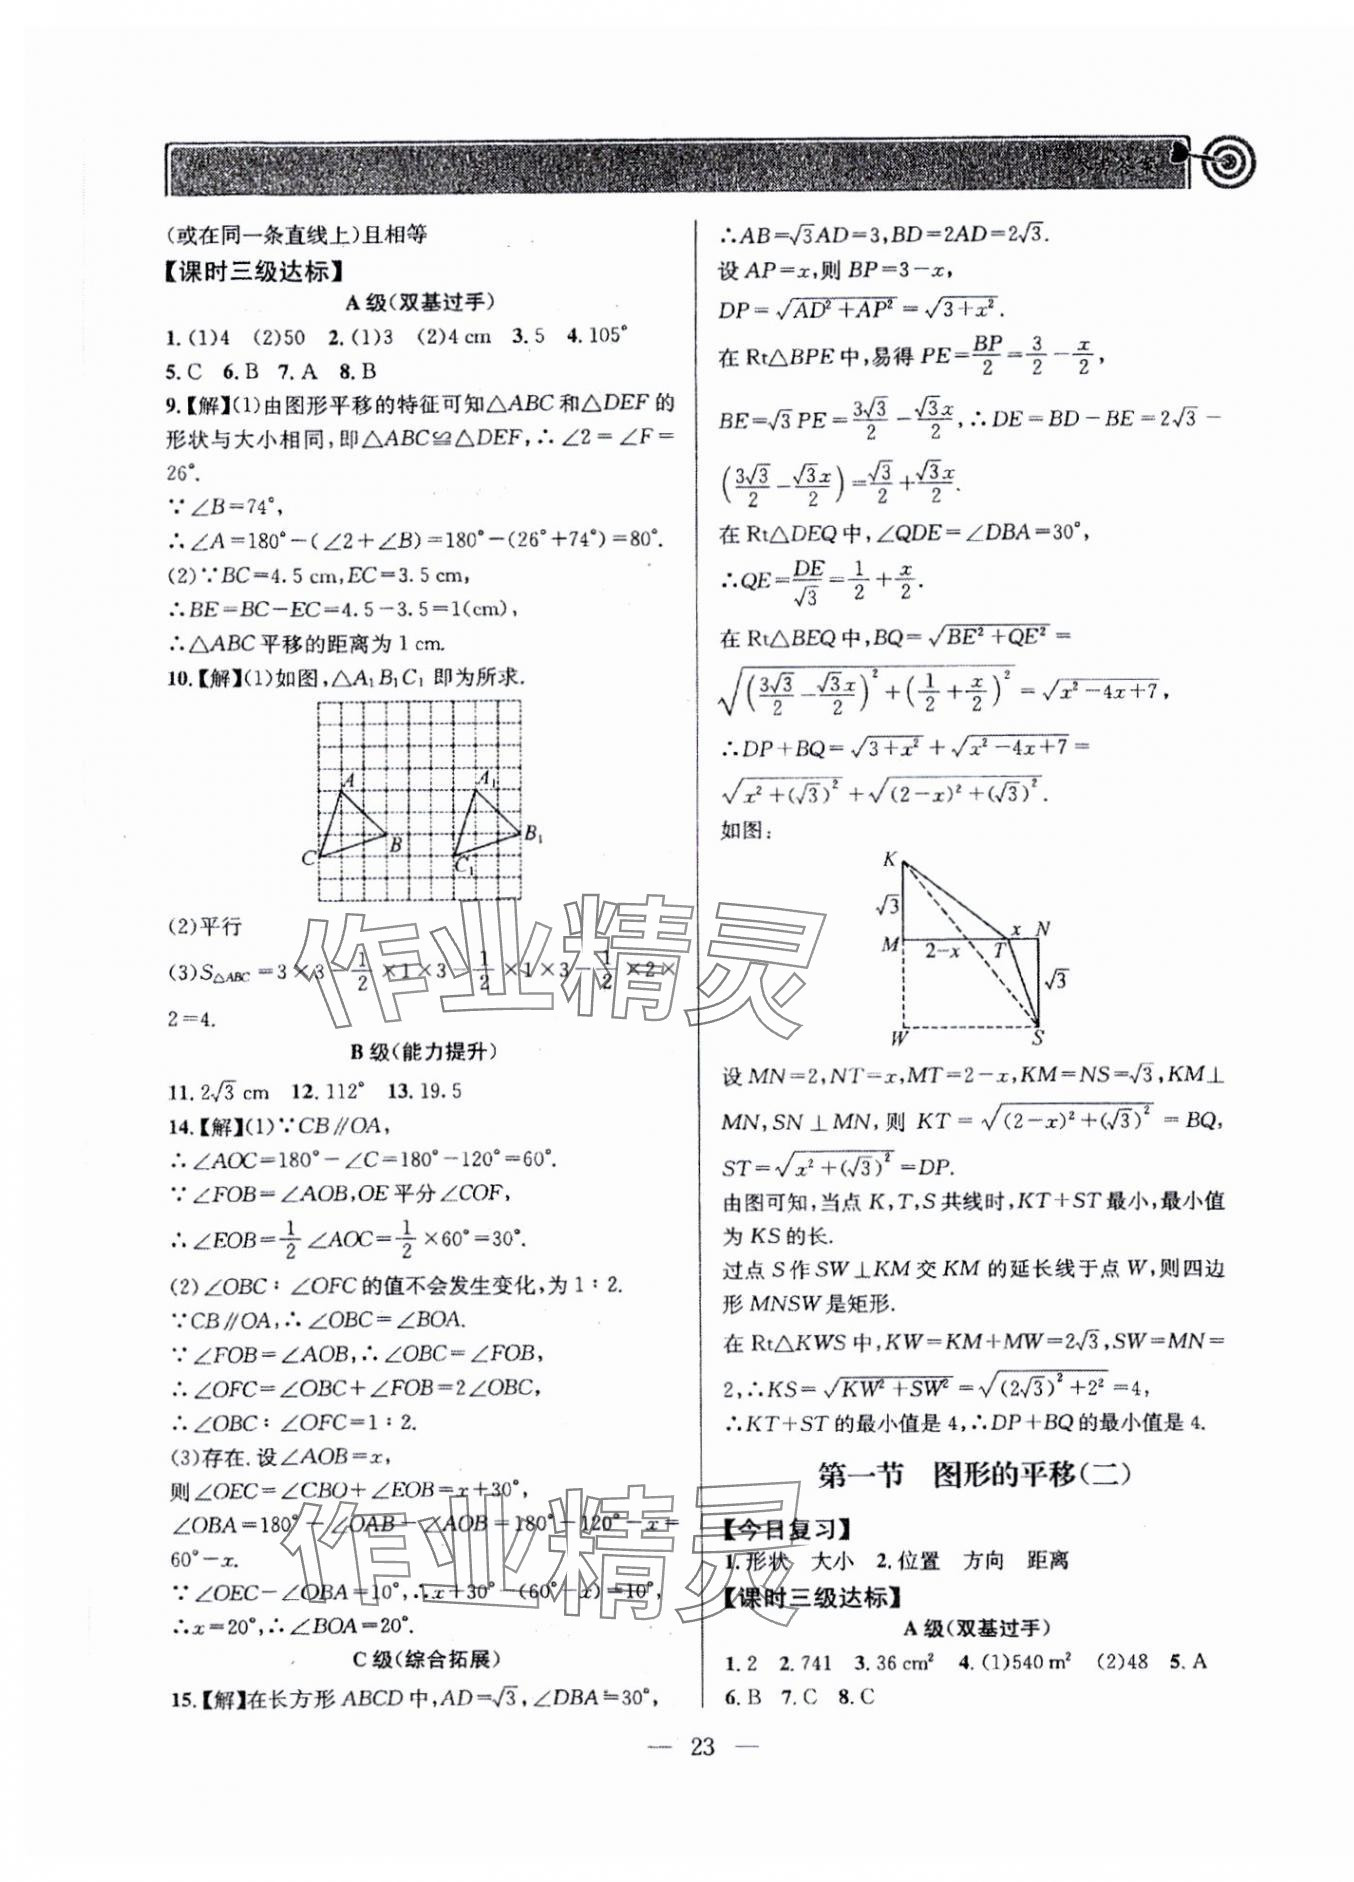 参考答案
(或在同一条直线上)且相等
【课时三级达标】
A 级(双基过手)
1.(1)4 (2)50 2.(1)3 (2)4 cm 3.5 4.105°
5.C 6.B 7.A 8.B
9.【解】(1)由图形平移的特征可知△ABC和△DEF的
形状与大小相同,即△ABC≌△DEF,∴∠2=∠F=
26°.
∵∠B=74°,
∴∠A=180°-(∠2+∠B)=180°-(26°+74°)=80°.
(2)∵BC=4.5 cm,EC=3.5 cm,
∴BE=BC-EC=4.5-3.5=1(cm),
∴△ABC平移的距离为1 cm.
10.【解】(1)如图,△A₁B₁C₁ 即为所求.
A A₁
B B₁
C C₁
(2)平行
(3)S△ABC=3×3-1/2×1×3-1/2×1×3-1/2×2×
2=4.
B 级(能力提升)
11.2√3 cm 12.112° 13.19.5
14.【解】(1)∵CB∥OA,
∴∠AOC=180°-∠C=180°-120°=60°.
∵∠FOB=∠AOB,OE平分∠COF,
∴∠EOB=1/2∠AOC=1/2×60°=30°.
(2)∠OBC∶∠OFC的值不会发生变化,为1∶2.
∵CB∥OA,∴∠OBC=∠BOA.
∵∠FOB=∠AOB,∴∠OBC=∠FOB,
∴∠OFC=∠OBC+∠FOB=2∠OBC,
∴∠OBC∶∠OFC=1∶2.
(3)存在.设∠AOB=x,
则∠OEC=∠CBO+∠EOB=x+30°,
∠OBA=180°-∠OAB-∠AOB=180°-120°-x=
60°-x.
∵∠OEC-∠OBA=10°,∴x+30°-(60°-x)=10°,
∴x=20°,∴∠BOA=20°.
C 级(综合拓展)
15.【解】在长方形ABCD中,AD=√3,∠DBA=30°,
∴AB=√3AD=3,BD=2AD=2√3.
设AP=x,则BP=3-x,
DP=√(AD²+AP²)=√(3+x²).
在Rt△BPE中,易得PE=BP/2=3/2-x/2,
BE=√3PE=3√3/2-√3x/2,∴DE=BD-BE=2√3-
(3√3/2-√3x/2)=√3/2+√3x/2.
在Rt△DEQ中,∠QDE=∠DBA=30°,
∴QE=DE/√3=1/2+x/2.
在Rt△BEQ中,BQ=√(BE²+QE²)=
√((3√3/2-√3x/2)²+(1/2+x/2)²)=√(x²-4x+7),
∴DP+BQ=√(3+x²)+√(x²-4x+7)=
√(x²+(√3)²)+√((2-x)²+(√3)²).
如图:
K
√3
x N
M 2-x T
√3
W S
设MN=2,NT=x,MT=2-x,KM=NS=√3,KM⊥
MN,SN⊥MN,则KT=√((2-x)²+(√3)²)=BQ,
ST=√(x²+(√3)²)=DP.
由图可知,当点K,T,S共线时,KT+ST最小,最小值
为KS的长.
过点S作SW⊥KM交KM的延长线于点W,则四边
形MNSW是矩形.
在Rt△KWS中,KW=KM+MW=2√3,SW=MN=
2,∴KS=√(KW²+SW²)=√((2√3)²+2²)=4,
∴KT+ST的最小值是4,∴DP+BQ的最小值是4.
第一节 图形的平移(二)
【今日复习】
1.形状 大小 2.位置 方向 距离
【课时三级达标】
A 级(双基过手)
1.2 2.741 3.36 cm² 4.(1)540 m² (2)48 5.A
6.B 7.C 8.C
— 23 —
作业精灵
作业精灵